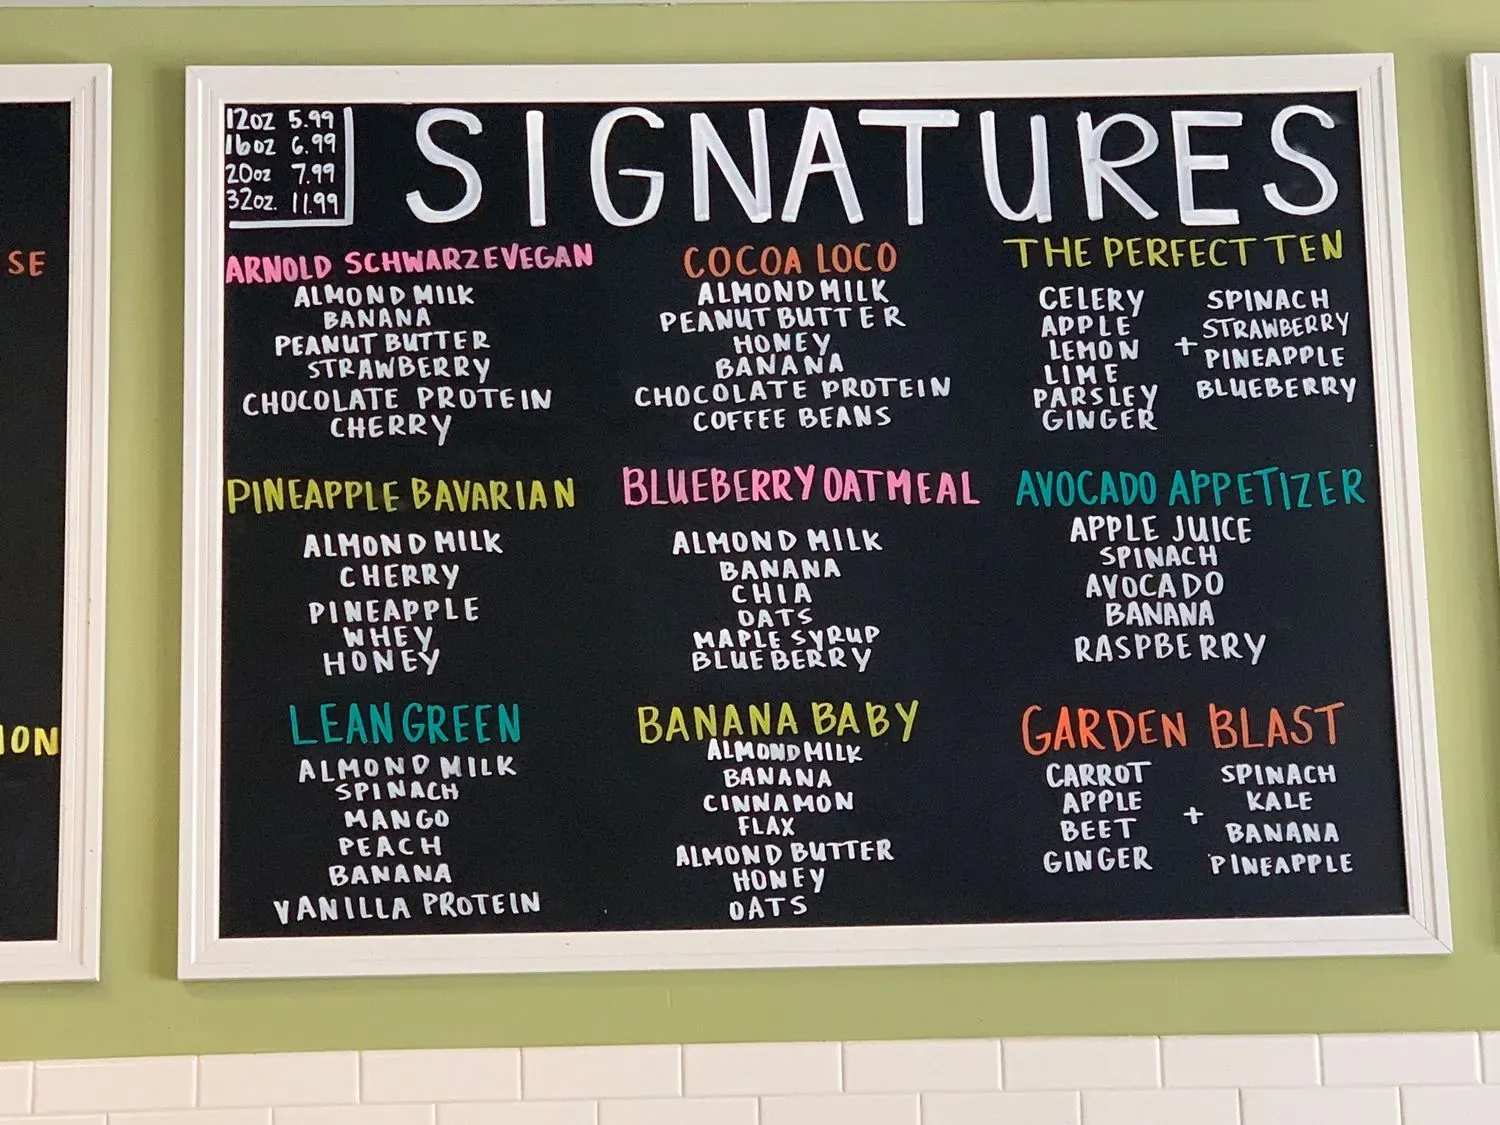 SE
ION
12oz 5.99
16oz 6.99
20oz 7.99
32oz. 11.99
SIGNATURES
ARNOLD SCHWARZEVEGAN
ALMOND MILK
BANANA
PEANUT BUTTER
STRAWBERRY
CHOCOLATE PROTEIN
CHERRY
COCOA LOCO
ALMOND MILK
PEANUT BUTTER
HONEY
BANANA
CHOCOLATE PROTEIN
COFFEE BEANS
THE PERFECT TEN
CELERY
APPLE
LEMON
LIME
PARSLEY
GINGER
+
SPINACH
STRAWBERRY
PINEAPPLE
BLUEBERRY
PINEAPPLE BAVARIAN
ALMOND MILK
CHERRY
PINEAPPLE
WHEY
HONEY
BLUEBERRY OATMEAL
ALMOND MILK
BANANA
CHIA
OATS
MAPLE SYRUP
BLUEBERRY
AVOCADO APPETIZER
APPLE JUICE
SPINACH
AVOCADO
BANANA
RASPBERRY
LEAN GREEN
ALMOND MILK
SPINACH
MANGO
PEACH
BANANA
VANILLA PROTEIN
BANANA BABY
ALMOND MILK
BANANA
CINNAMON
FLAX
ALMOND BUTTER
HONEY
OATS
GARDEN BLAST
CARROT
APPLE
BEET
GINGER
+
SPINACH
KALE
BANANA
PINEAPPLE